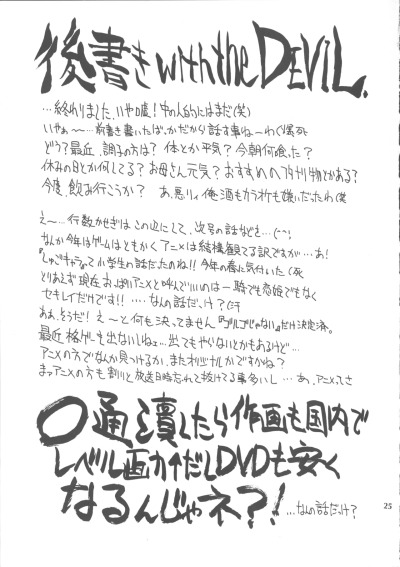 後書きwiththeDEVIL.
…終わりました、いや嘘!中の人的にはまだ(笑)
いやぁ〜…前書き書いたばっかだから話す事ね〜わ(爆死
どう?最近、調子の方は?体とか平気?今朝何喰った?
休みの日とか何してる?お母さん元気?おすすめの刊物とかある?
今度、飲み行こうか?あ、悪りィ俺酒もカラオケも嫌いだったわ(笑
え〜…行数かせぎはこの辺にして、次号の話などを…(^^;)
なんか今年はゲームはともかくアニメは結構観てる訳ですが…あ!
『しゅごキャラ』て小学生の話だったのね!!今年の春に気付いた(死
とりあえず現在おっぱいアニメと呼んでいいのは一騎でも恋姫でもなく
セキレイだけです!!…なんの話だっけ?
ああ、そうだ!え〜と何も決ってません『ブルブルじゃない』だけ決定済。
最近格ゲーも出ないしねェ…出てもやらないとかもあるけど…
アニメの方でなんか見っけるか、またオリジナルかですかね?
まァアニメの方も割りと放送日時忘れて抜けてる事多いし…あっ、アニメってさ
〇通潰したら作画も国内で
レベル画一だしDVDも安く
なるんじゃネ?!…なんの話だっけ?
25